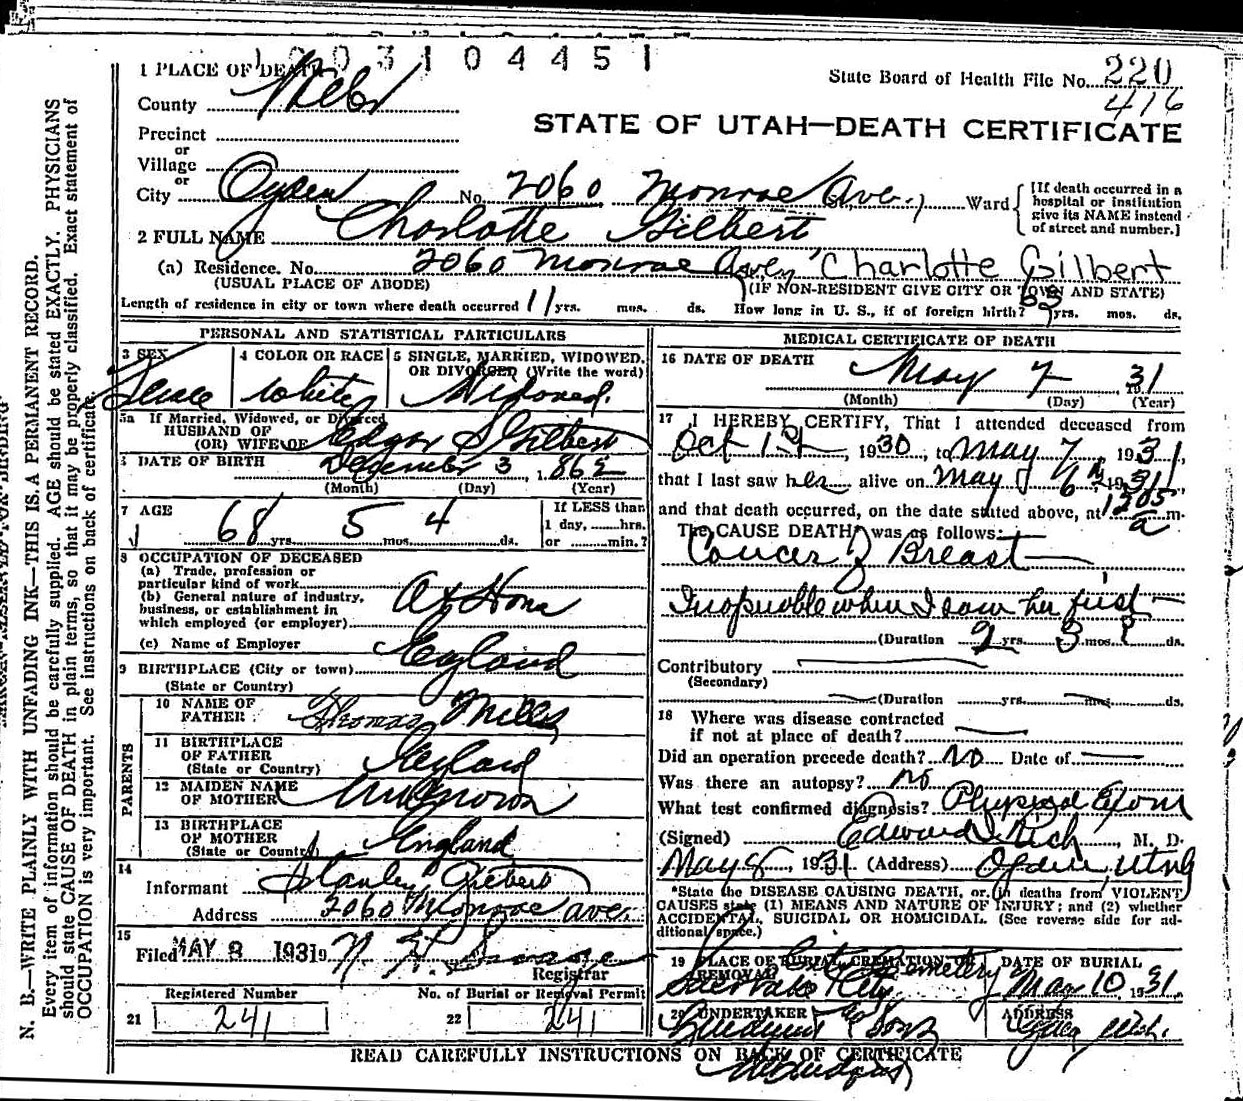 1003104451
1 PLACE OF DEATH
State Board of Health File No. 220
416
County Weber
STATE OF UTAH—DEATH CERTIFICATE
Precinct
or
Village
or
City Ogden No. 2060 Monroe Ave. Ward
[If death occurred in a
hospital or institution
give its NAME instead
of street and number.]
2 FULL NAME Charlotte Gilbert
(a) Residence. No. 2060 Monroe Ave. Charlotte Gilbert
(USUAL PLACE OF ABODE) (IF NON-RESIDENT GIVE CITY OR TOWN AND STATE)
Length of residence in city or town where death occurred 11 yrs. mos. ds. How long in U. S., if of foreign birth? 63 yrs. mos. ds.
PERSONAL AND STATISTICAL PARTICULARS
3 SEX 4 COLOR OR RACE 5 SINGLE, MARRIED, WIDOWED,
OR DIVORCED (Write the word)
Female White Widowed.
5a If Married, Widowed, or Divorced
HUSBAND OF
(OR) WIFE OF Edgar S Gilbert
DATE OF BIRTH December 3, 1862
(Month) (Day) (Year)
7 AGE If LESS than
1 day, hrs.
68 yrs. 5 mos. 4 ds. or min.?
8 OCCUPATION OF DECEASED
(a) Trade, profession or
particular kind of work
(b) General nature of industry,
business, or establishment in
which employed (or employer) At Home
(c) Name of Employer
9 BIRTHPLACE (City or town) England
(State or Country)
PARENTS
10 NAME OF
FATHER Thomas Mills
11 BIRTHPLACE
OF FATHER England
(State or Country)
12 MAIDEN NAME
OF MOTHER Unknown
13 BIRTHPLACE
OF MOTHER England
(State or Country)
14
Informant Stanley Gilbert
Address 2060 Monroe ave.
15
Filed MAY 8 1931 19
Registrar
Registered Number No. of Burial or Removal Permit
21 241 22 241
MEDICAL CERTIFICATE OF DEATH
16 DATE OF DEATH May 7 31
(Month) (Day) (Year)
17 I HEREBY CERTIFY, That I attended deceased from
Oct 1st, 1930, to May 7, 1931,
that I last saw her alive on May 6th, 1931,
and that death occurred, on the date stated above, at 1205 a m.
The CAUSE DEATH was as follows:
Cancer of Breast
Inoperable when I saw her first
(Duration 2 yrs. 3 mos. ? ds.
Contributory
(Secondary)
(Duration yrs. mos. ds.
18 Where was disease contracted
if not at place of death?
Did an operation precede death? No Date of
Was there an autopsy? No
What test confirmed diagnosis? Physical Exam
(Signed) Edward I Rich, M. D.
May 8, 1931 (Address) Ogden, Utah
*State the DISEASE CAUSING DEATH, or, in deaths from VIOLENT
CAUSES state (1) MEANS AND NATURE OF INJURY; and (2) whether
ACCIDENTAL, SUICIDAL OR HOMICIDAL. (See reverse side for ad-
ditional space.)
19 PLACE OF BURIAL, CREMATION, OR
REMOVAL City Cemetery
Salt Lake City
DATE OF BURIAL
May 10 1931.
20 UNDERTAKER & Sons
ADDRESS
Ogden Utah.
READ CAREFULLY INSTRUCTIONS ON BACK OF CERTIFICATE
N. B.—WRITE PLAINLY WITH UNFADING INK—THIS IS A PERMANENT RECORD.
Every item of information should be carefully supplied. AGE should be stated EXACTLY. PHYSICIANS
should state CAUSE OF DEATH in plain terms, so that it may be properly classified. Exact statement of
OCCUPATION is very important. See instructions on back of certificate.